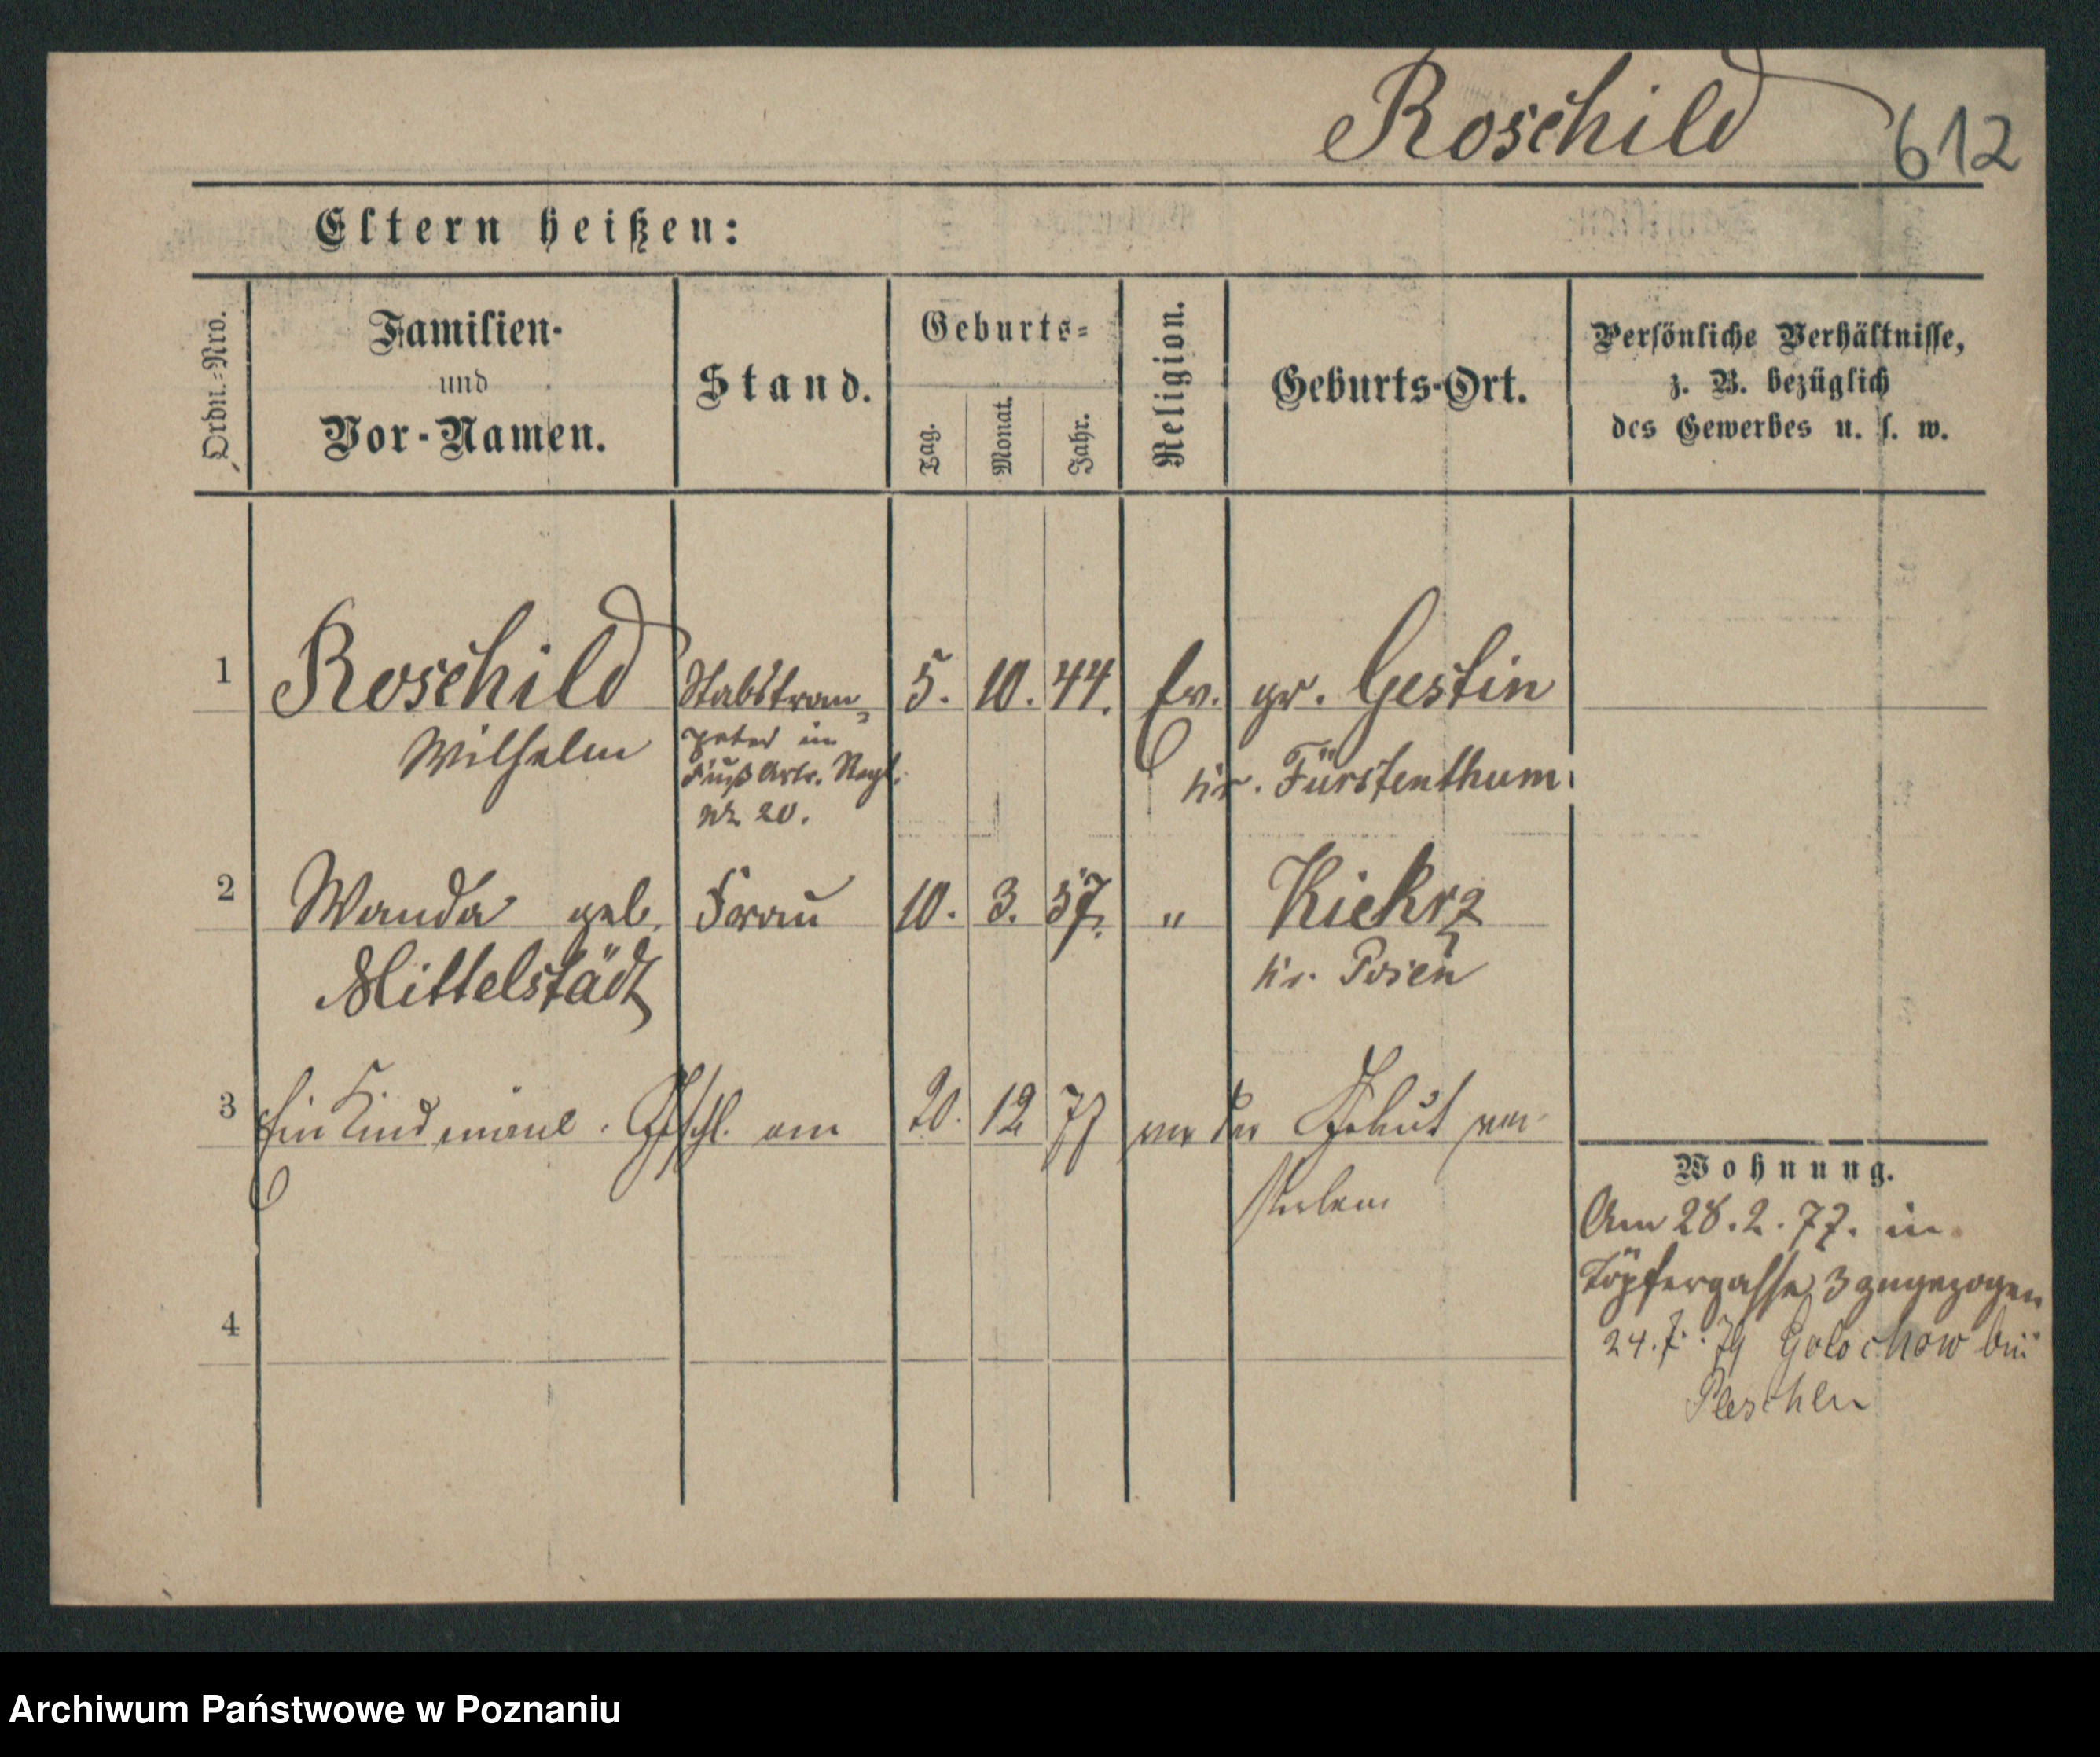 Roschild 612
Eltern heißen:
Ordn.-Nro.
Familien-
und
Vor-Namen.
Stand.
Geburts-
Tag.
Monat.
Jahr.
Religion.
Geburts-Ort.
Persönliche Verhältnisse,
z. B. bezüglich
des Gewerbes u. s. w.
1 Roschild Stabstrom- 5. 10. 44. Ev. gr. Gestin
Wilhelm peter in kr. Fürstenthum
Fuß Artr. Regt.
Nr. 20.
2 Wanda geb. Frau 10. 3. 57. " Kiekrz
Mittelstädt kr. Posen
3 Ein Kind männl. Geschl. am 20. 12 77 vor der Geburt ver-
storben
4
Wohnung.
Am 28.2.77. in
Töpfergasse 3 zugezogen
24.7.79 Golochow bei
Pleschen
Archiwum Państwowe w Poznaniu